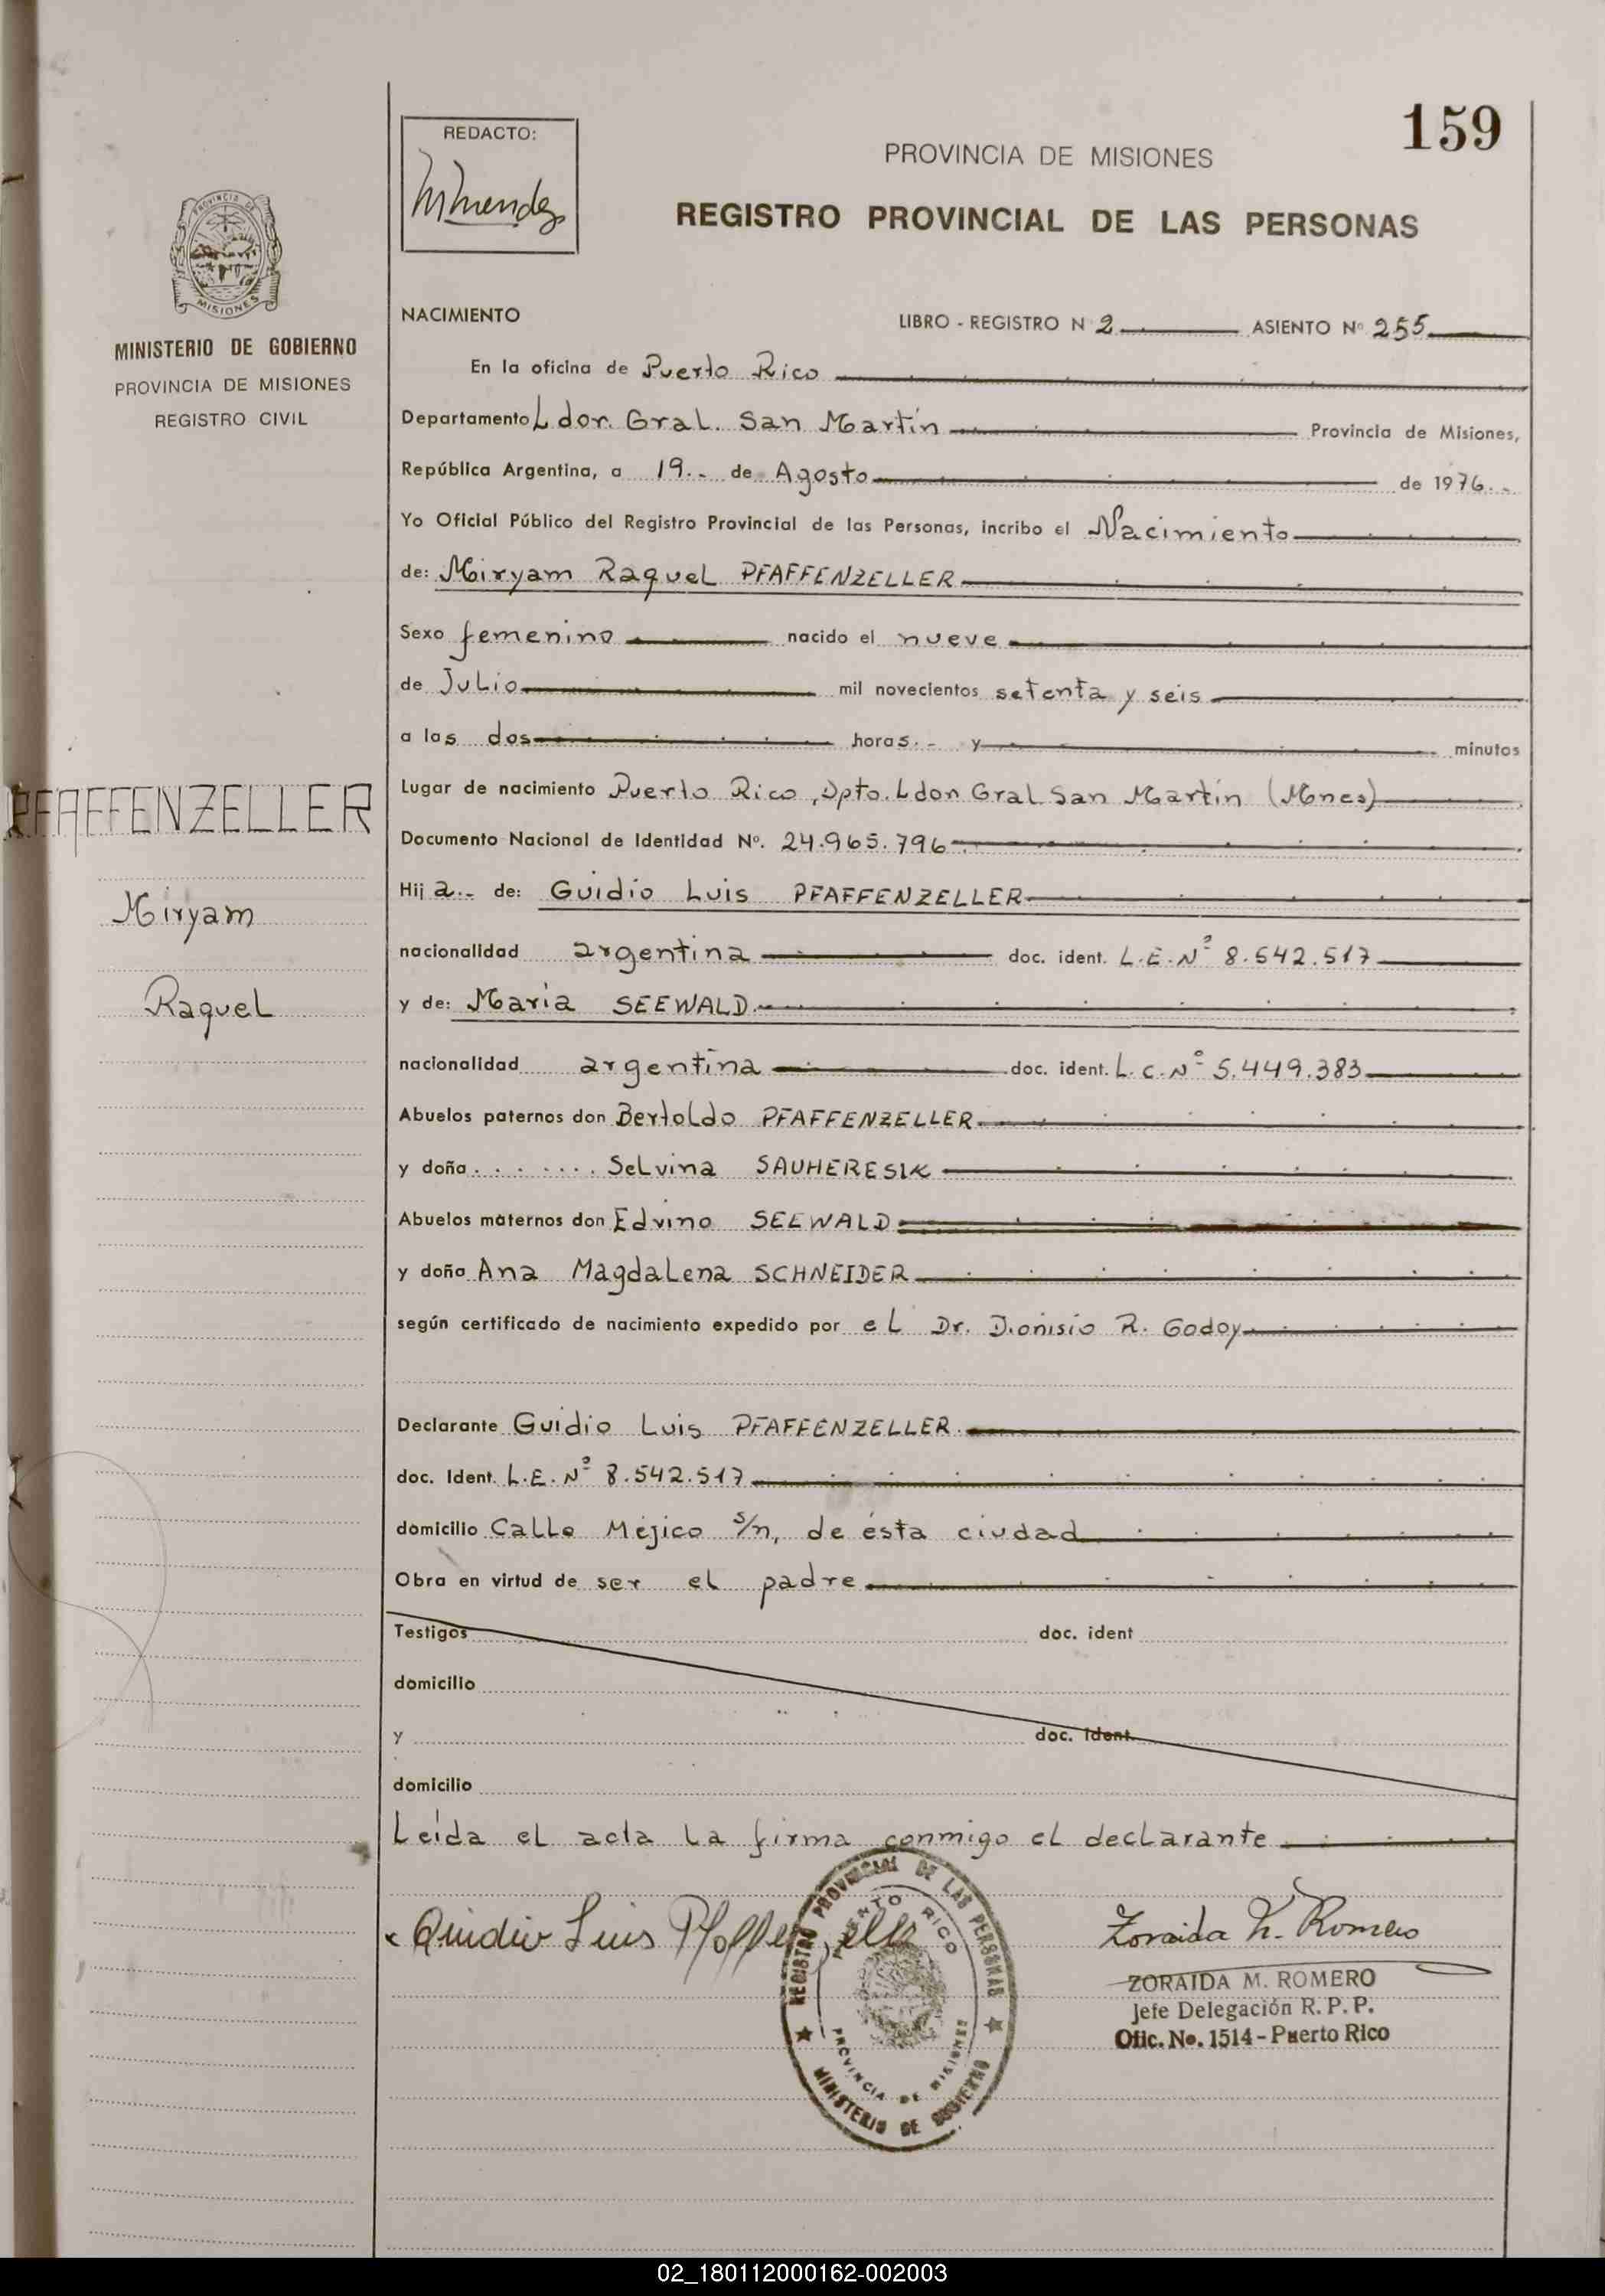 159
REDACTO:
MMendez
PROVINCIA DE MISIONES
REGISTRO PROVINCIAL DE LAS PERSONAS
PROVINCIA DE
MISIONES
MINISTERIO DE GOBIERNO
PROVINCIA DE MISIONES
REGISTRO CIVIL
NACIMIENTO LIBRO - REGISTRO N 2 ASIENTO Nº 255
En la oficina de Puerto Rico
Departamento Ldor. Gral. San Martín Provincia de Misiones,
República Argentina, a 19.- de Agosto de 1976.-
Yo Oficial Público del Registro Provincial de las Personas, incribo el Nacimiento
de: Miryam Raquel PFAFFENZELLER
Sexo femenino nacido el nueve
de Julio mil novecientos setenta y seis
a las dos horas.- y minutos
PFAFFENZELLER
Miryam
Raquel
Lugar de nacimiento Puerto Rico, Dpto. Ldor Gral San Martín (Mnes)
Documento Nacional de Identidad Nº. 24.965.796
Hij a.- de: Guidio Luis PFAFFENZELLER
nacionalidad argentina doc. ident. L.E.Nº 8.542.517
y de: María SEEWALD
nacionalidad argentina doc. ident. L.C.Nº 5.449.383
Abuelos paternos don Bertoldo PFAFFENZELLER
y doña....... Selvina SAUHERESIK
Abuelos maternos don Edvino SEEWALD
y doña Ana Magdalena SCHNEIDER
según certificado de nacimiento expedido por el Dr. Dionisio R. Godoy
Declarante Guidio Luis PFAFFENZELLER.
doc. Ident. L.E.Nº 8.542.517
domicilio Calle Méjico s/n, de ésta ciudad
Obra en virtud de ser el padre
Testigos doc. ident
domicilio
y doc. ident.
domicilio
Leída el acta la firma conmigo el declarante
Guidio Luis Pfaffenzeller
Zoraida M. Romero
REGISTRO PROVINCIAL DE LAS PERSONAS
PUERTO RICO
PROVINCIA DE MISIONES
MINISTERIO DE GOBIERNO
ZORAIDA M. ROMERO
Jefe Delegación R. P. P.
Ofic. No. 1514 - Puerto Rico
02_180112000162-002003